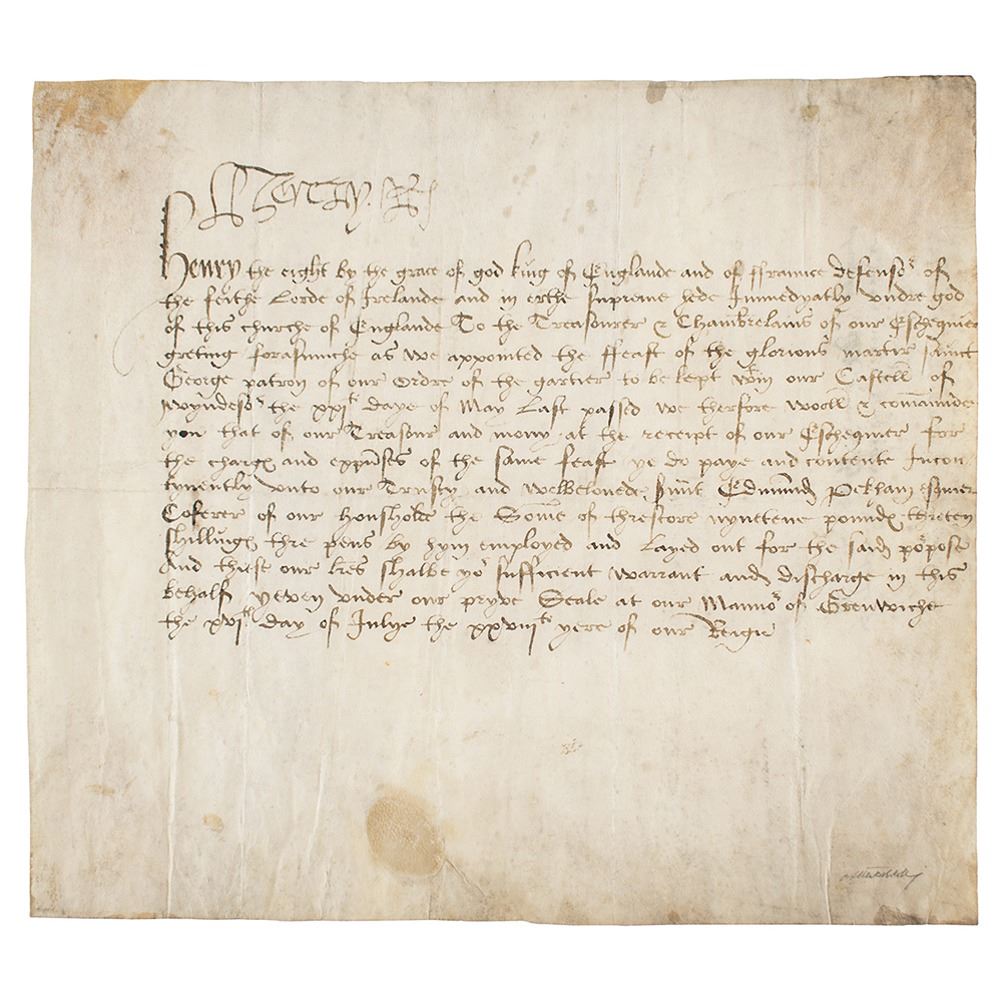 Henry R
Henry the eight by the grace of god king of Englande and of ffraunce defensor of
the feithe Lorde of Irelande and in erthe supreme hede Immedyatly undre god
of this churche of Englande To the Treasourer & Chambrelains of our Eschequier
greting forasmuche as we appointed the ffeast of the glorious martir sainct
George patron of our Ordre of the gartier to be kept wtin our Castell of
Wyndesor the xxith daye of May last passed we therfore wooll & commaunde
you that of our Treasour and mony at the receipt of our Eschequier for
the charges and expenses of the same feast ye do paye and contente Incon
tynently unto our Trusty and welbeloved srvnt Edmund Pekham esquier
Cofferer of our housholde the Somme of threscore nyntene poundes thretten
shillinges thre pens by hym employed and layed out for the said porpose
And thiese our lres shalbe yor sufficient warrant and discharge in this
behalf yeven under our pryve Seale at our Mannor of Grenwiche
the xvith day of Julye the xxviiith yere of our Reigne